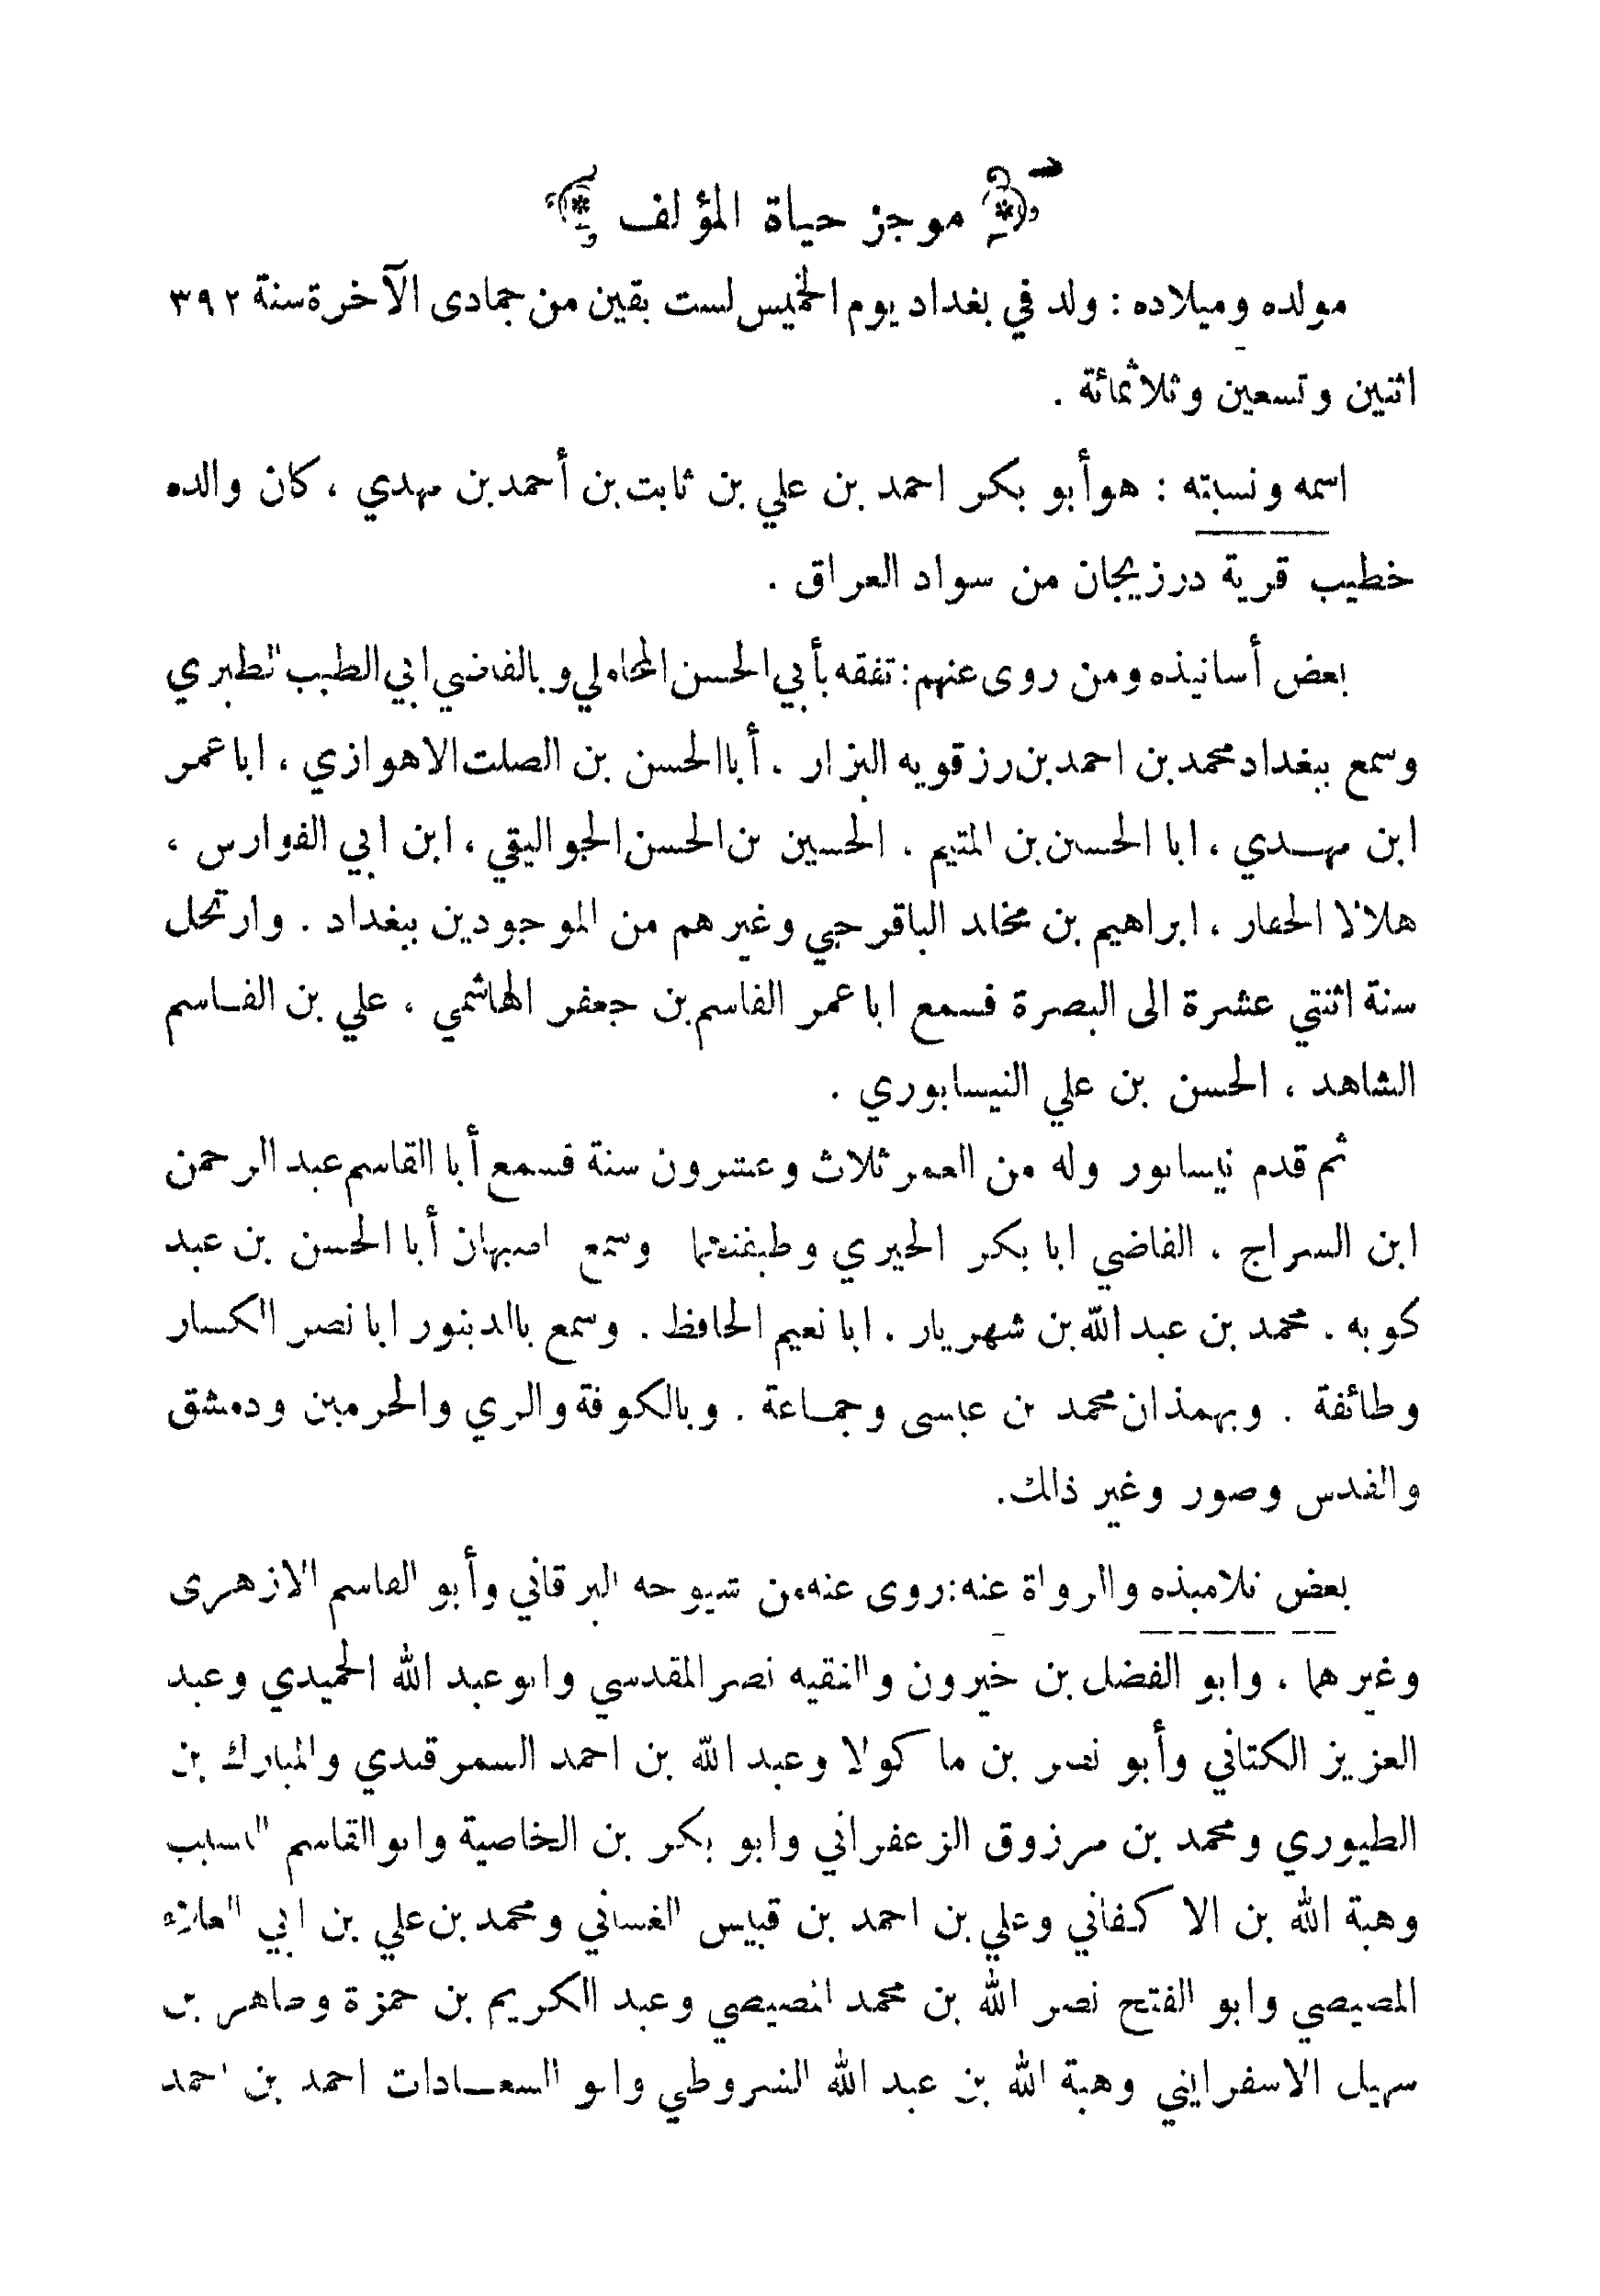 موجز حياة المؤلف
مولده وميلاده : ولد في بغداد يوم الخميس لست بقين من جمادى الآخرة سنة ٣٩٢
اثنين وتسعين وثلاثمائة .
اسمه ونسبته : هو أبو بكر احمد بن علي بن ثابت بن أحمد بن مهدي ، كان والده
خطيب قرية درزيجان من سواد العراق .
بعض أسانيذه ومن روى عنهم : تفقه بأبي الحسن المحاملي وبالقاضي ابي الطيب الطبري
وسمع ببغداد محمد بن احمد بن رزقويه البزار . أبا الحسن بن الصلت الاهوازي ، ابا عمر
ابن مهدي ، ابا الحسن بن المتيم . الحسين بن الحسن الجواليقي ، ابن ابي الفوارس ،
هلالا الحفار ، ابراهيم بن مخلد الباقرحي وغيرهم من الموجودين ببغداد . وارتحل
سنة اثنتي عشرة الى البصرة فسمع ابا عمر القاسم بن جعفر الهاشمي ، علي بن القاسم
الشاهد ، الحسن بن علي النيسابوري .
ثم قدم نيسابور وله من العمر ثلاث وعشرون سنة فسمع أبا القاسم عبد الرحمن
ابن السراج . القاضي ابا بكر الحيري وطبقتهما وسمع اصبهان أبا الحسن بن عبد
كويه . محمد بن عبد الله بن شهريار . ابا نعيم الحافظ . وسمع بالدينور ابا نصر الكسار
وطائفة . وبهمذان محمد بن عيسى وجماعة . وبالكوفة والري والحرمين ودمشق
والقدس وصور وغير ذالك .
بعض تلاميذه والرواة عنه : روى عنه من شيوخه البرقاني وأبو القاسم الازهرى
وغيرهما . وابو الفضل بن خيرون والفقيه نصر المقدسي وابو عبد الله الحميدي وعبد
العزيز الكتاني وأبو نصر بن ما كولا وعبد الله بن احمد السمرقندي والمبارك بن
الطيوري ومحمد بن مرزوق الزعفراني وابو بكر بن الخاصية وابو القاسم النسيب
وهبة الله بن الا كفاني وعلي بن احمد بن قبيس الغساني ومحمد بن علي بن ابي العلاء
المصيصي وابو الفتح نصر الله بن محمد المصيصي وعبد الكريم بن حمزة وطاهر بن
سهيل الاسفرايني وهبة الله بن عبد الله الشروطي وابو السعادات احمد بن احمد